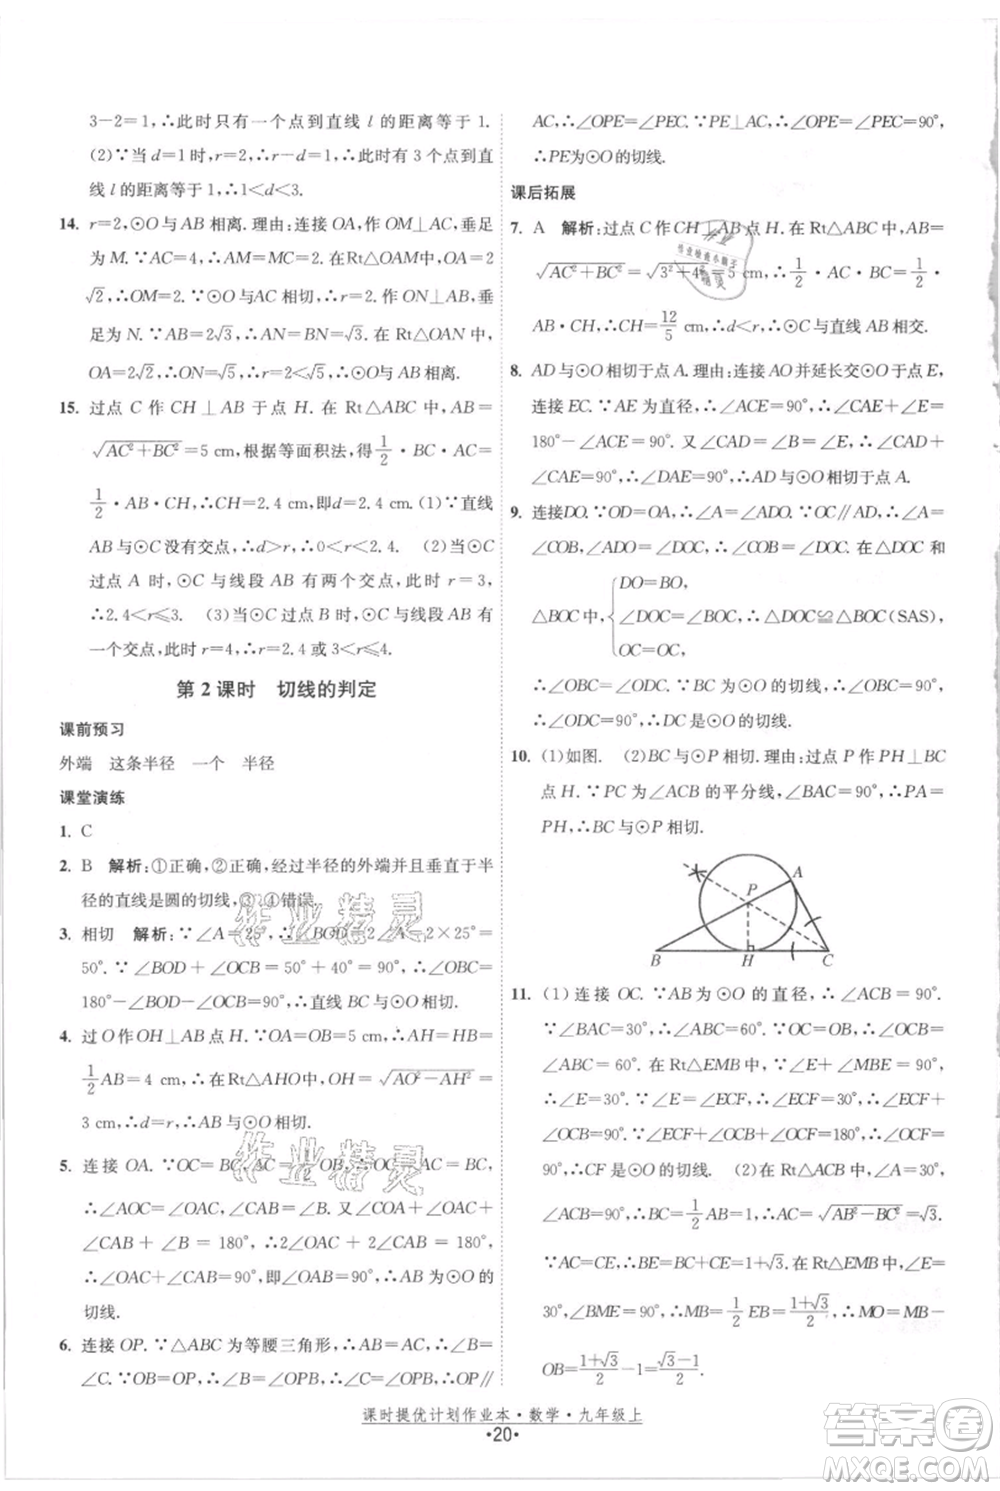 3-2=1,∴此时只有一个点到直线 l 的距离等于 1.
(2)∵当 d=1时,r=2,∴r-d=1,此时有 3 个点到直
线 l 的距离等于1,∴1<d<3.
14. r=2,⊙O与AB相离.理由:连接 OA,作 OM⊥AC,垂足
为 M.∵AC=4,∴AM=2.在 Rt△OAM中,∵OA=
2√2,∴OM=2.∵⊙O与AC相切,∴r=2.作 ON⊥AB,垂
足为 N.∵AB=2√3,∴AN=BN=√3.在 Rt△OAN 中,
OA=2√2,∴ON=√5.∵√5>2,∴⊙O与AB相离.
15. 过点 C 作 CH⊥AB 于点 H.在 Rt△ABC 中,AB=
√(AC²+BC²)=5 cm,根据等积法,得 1/2·BC·AC=
1/2·AB·CH,∴CH=2.4 cm,即d=2.4 cm.(1)∵直线
AB与⊙C没有交点,∴d>r,∴0<r<2.4. (2)当⊙C
过点B时,此时,⊙C与线段AB有两个交点,此时 r=3,
∴2.4<r≤3. (3)当⊙C 过点 A 时,⊙C 与线段AB有
一个交点,此时 r=4,∴r=2.4或 3<r≤4.
第 2 课时 切线的判定
课前预习
外端 这条半径 一个 半径
课堂演练
1. C
2. B 解析:①正确,②正确,经过半径的外端并且垂直于半
径的直线是圆的切线,③④错误.
3. 相切 解析:∵∠A=25°,∴∠BOD=2∠A=2×25°=
50°.∵∠BOD+∠OCB=50°+40°=90°,∴∠OBC=
180°-∠BOD-∠OCB=90°,∴直线BC与⊙O相切.
4. 过 O作OH⊥AB,垂足为点 H.∵OA=OB=5 cm,∴AH=HB=
1/2AB=4 cm,∴在Rt△AHO中,OH=√(AO²-AH²)=
3 cm,∴d=r,∴AB与⊙O 相切.
5. 连接 OA.∵OC=BC,AC=1/2OB,∴OC=BC=AC,
∴∠OAC=∠AOC,∠CAB=∠B.又∵∠COA+∠OAC+
∠CAB+∠B=180°,∴2∠OAC+2∠CAB=180°,
∴∠OAC+∠CAB=90°,即∠OAB=90°,∴AB是⊙O的
切线.
6. 连接 OP.∵△ABC 为等腰三角形,∴AB=AC,∴∠B=
∠C.∵OP=OB,∴∠B=∠OPB,∴∠OPB=∠C,∴OP∥
AC,∴∠OPE=∠PEC.∵PE⊥AC,∴∠OPE=∠PEC=90°,
∴PE为⊙O的切线.
课后拓展
7. A 解析:过点 C 作CH⊥AB于点 H.在 Rt△ABC中,AB=
√(AC²+BC²)=√(3²+4²)=5 cm,∵1/2·AC·BC=1/2·
AB·CH,∴CH=12/5 cm,∴d<r,∴⊙C与直线 AB 相交.
8. AD与⊙O相切于点A.理由:连接 AO并延长交⊙O于点E,
连接 EC.∵AE 为直径,∴∠ACE=90°,∴∠CAE+∠E=
180°-90°=90°.∵∠B=∠E,又∠CAD=∠B=∠E,∴∠CAD+
∠CAE=90°,∴∠DAE=90°,∴AD与⊙O相切于点 A.
9. 连接DO.∵OD=OA,∴∠A=∠ADO.∵OC∥AD,∴∠A=
∠COB,∠ADO=∠DOC,∴∠DOC=∠COB.在△DOC 和
△BOC中,{DO=BO, ∠DOC=∠BOC, OC=OC, ∴△DOC≌△BOC(SAS),
∴∠ODC=∠OBC.∵BC与⊙O相切于点B,∴∠OBC=90°,
∴∠ODC=90°,∴DC是⊙O的切线.
10. (1)如图. (2)BC与⊙P相切.理由:过点 P 作 PH⊥BC于
点 H.∵PC 为∠ACB的平分线,∴∠PHC=∠A=90°,∴PA=
PH,∴BC与⊙P 相切.
A
P
B H C
11. (1)连接 OC.∵AB为⊙O 的直径,∴∠ACB=90°.
∵∠BAC=30°,∴∠ABC=60°.∵OB=OC,∴∠OCB=
∠ABC=60°.在 Rt△EMB 中,∵∠E+∠MBE=90°,
∴∠E=30°.∵∠E=∠ECF,∴∠ECF=30°,∴∠ECF+
∠OCB=90°.∵∠ECF+∠OCB+∠OCF=180°,∴∠OCF=
90°,∴CF是⊙O的切线. (2)在Rt△ACB中,∠A=30°,
∠ACB=90°,∴AB=2BC=2,∴AC=√(AB²-BC²)=√3.
∵AC=CE,∴CE=√3,∴BE=1+√3.在Rt△EMB中,∠E=
30°,∠BME=90°,∴MB=1/2EB=(1+√3)/2,∴MO=MB-
OB=(1+√3)/2-1=(√3-1)/2.
课时提优计划作业本·数学·九年级上
·20·
作业精灵
作业精灵
答案圈
MXQE.COM